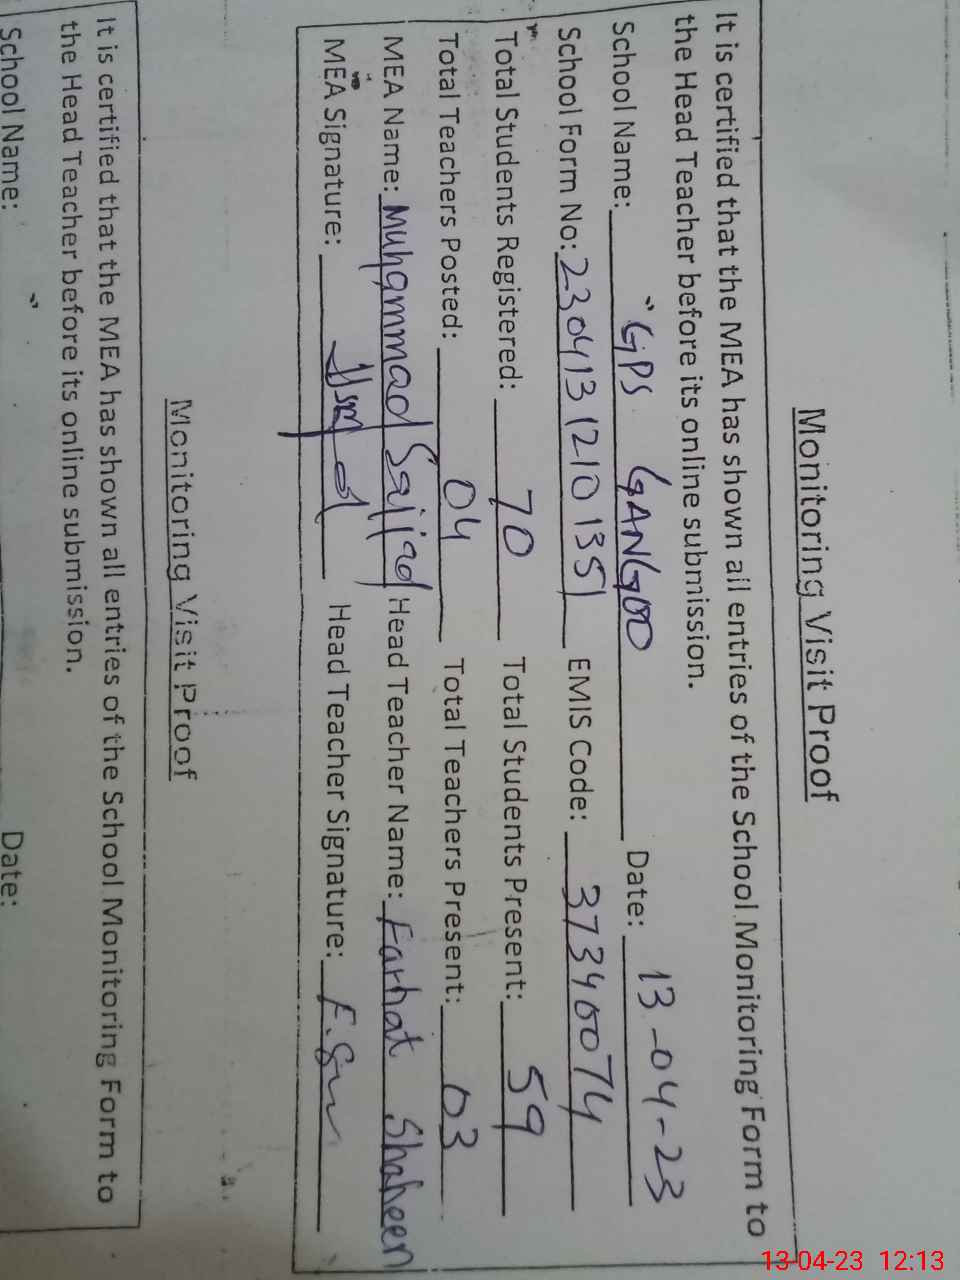 Monitoring Visit Proof
It is certified that the MEA has shown all entries of the School Monitoring Form to
the Head Teacher before its online submission.
School Name: GPS GANGOO Date: 13-04-23
School Form No: 23041312101351 EMIS Code: 37340074
Total Students Registered: 70 Total Students Present: 59
Total Teachers Posted: 04 Total Teachers Present: 03
MEA Name: Muhammad Sajjad Head Teacher Name: Farhat Shaheen
MEA Signature: Head Teacher Signature:
Monitoring Visit Proof
It is certified that the MEA has shown all entries of the School Monitoring Form to
the Head Teacher before its online submission.
School Name: Date:
13-04-23 12:13